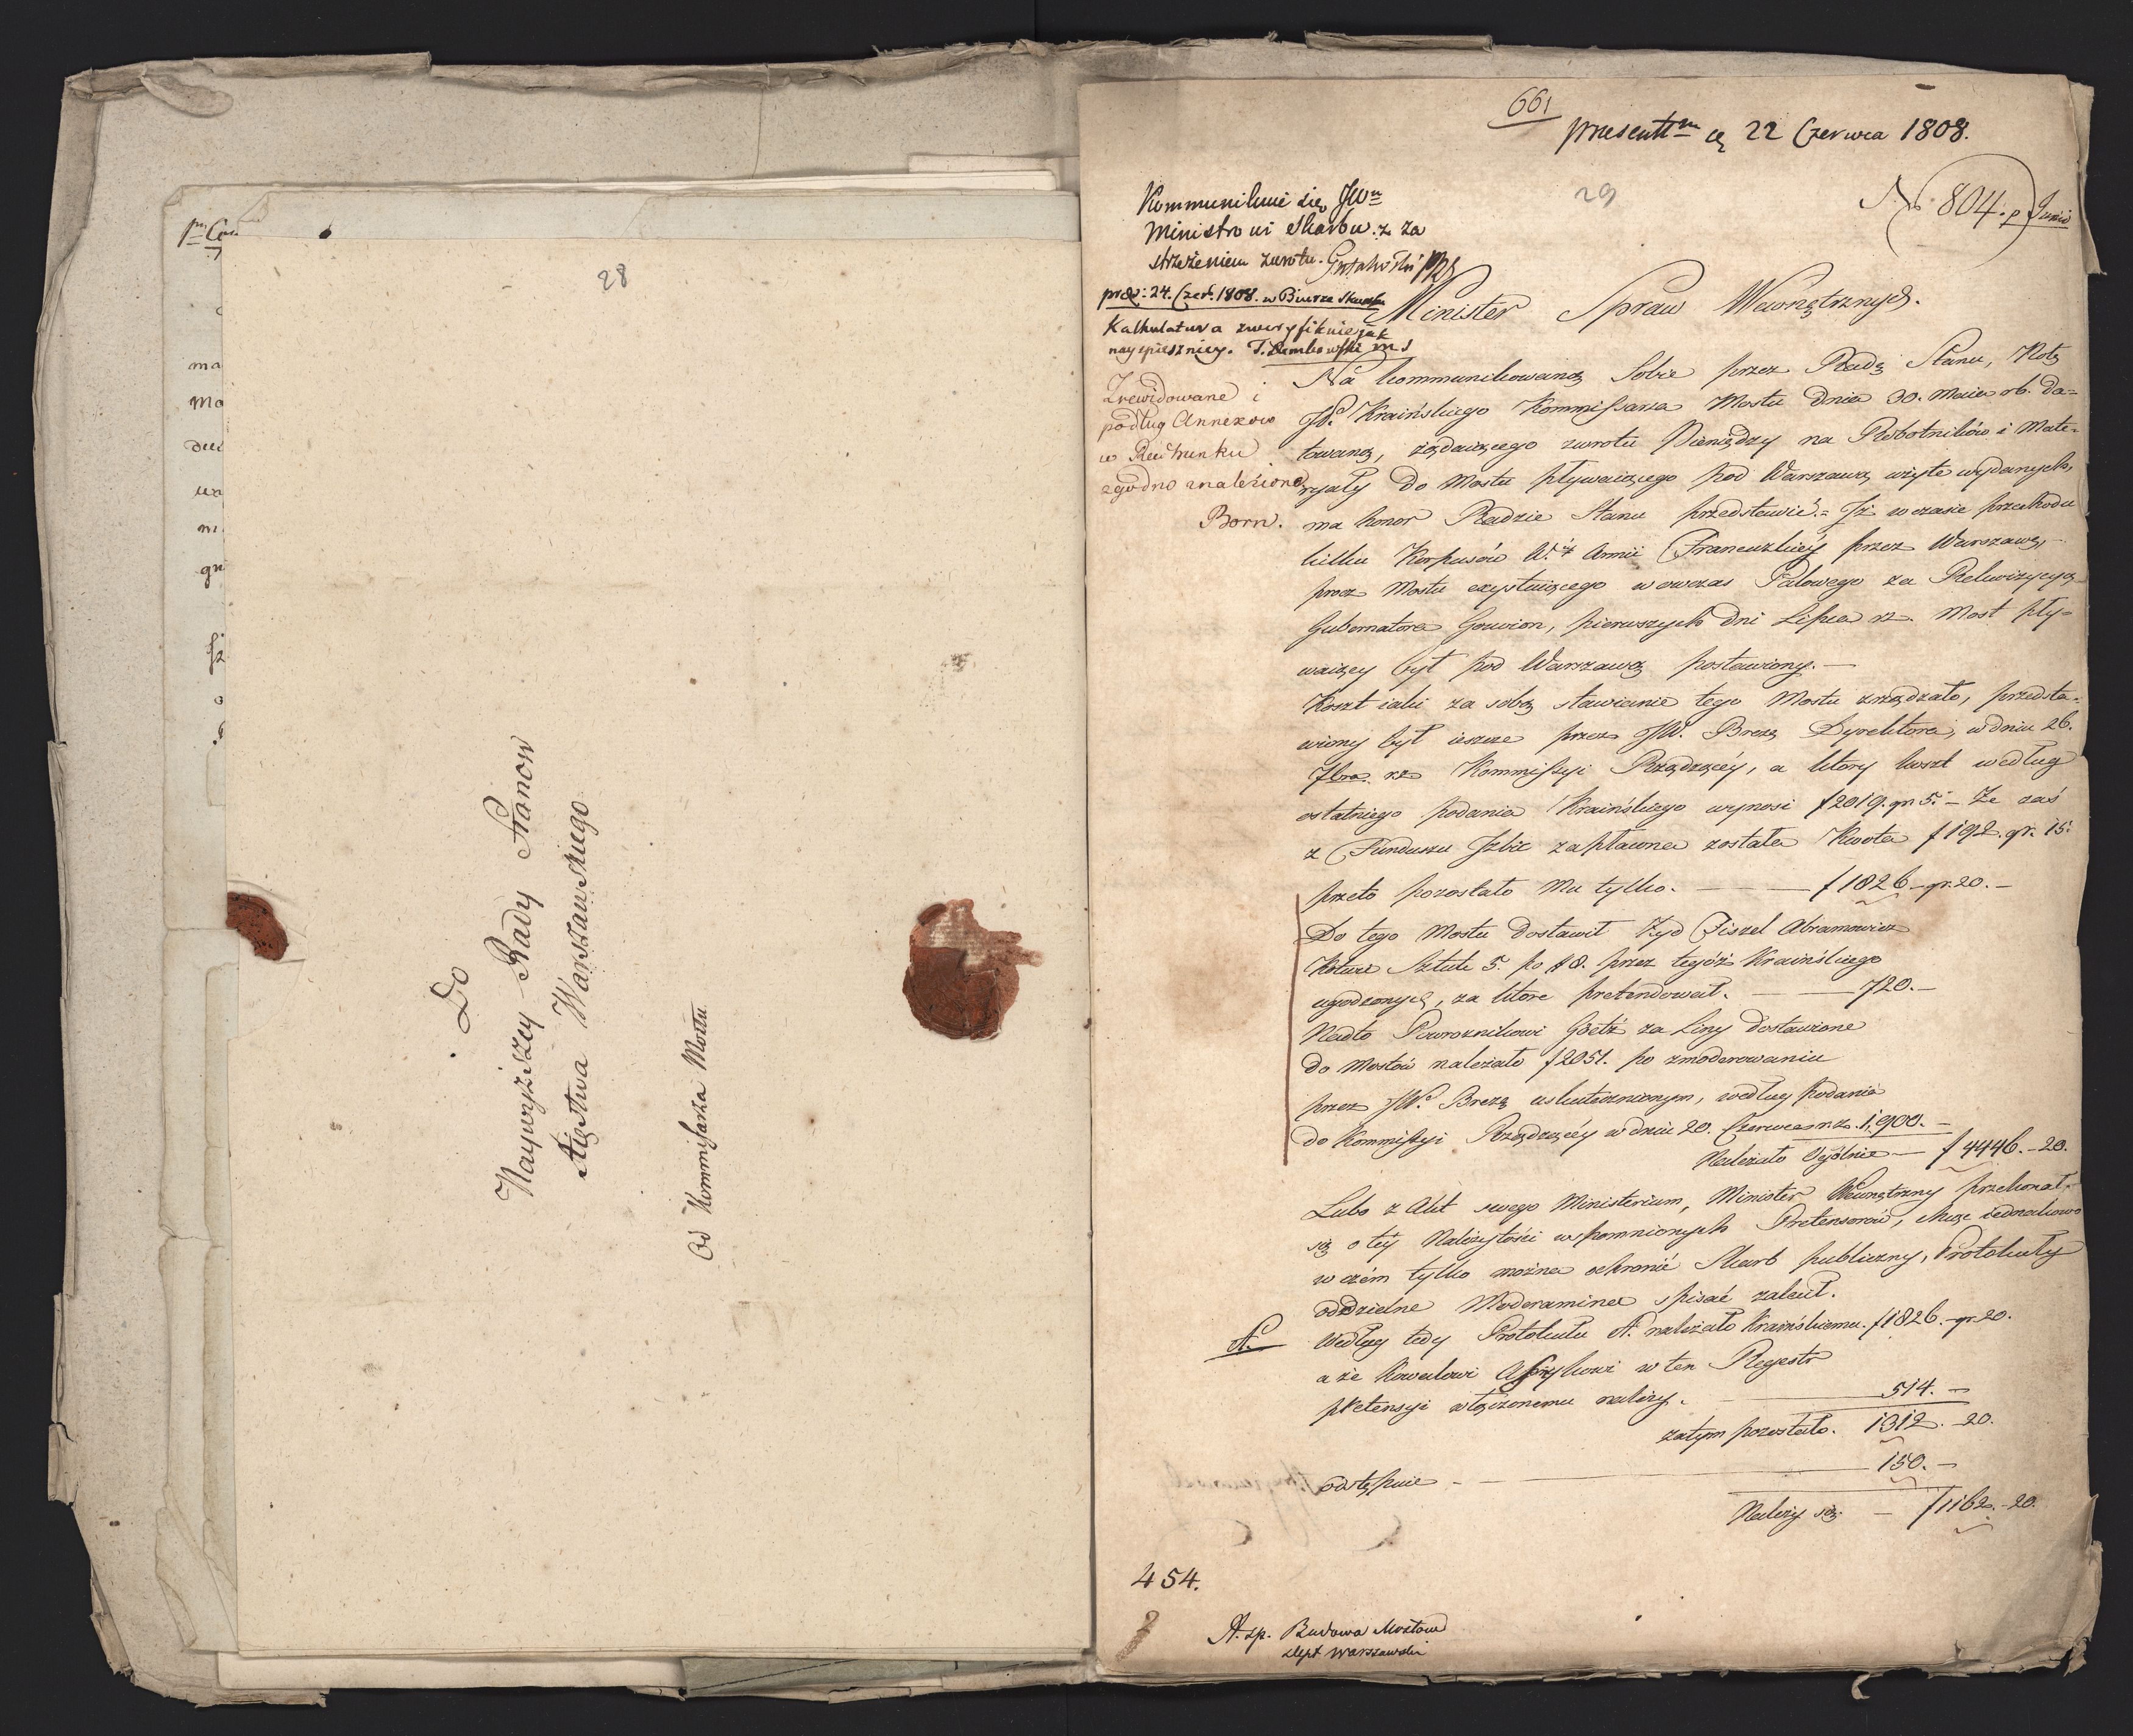 28
Do
Naywyższey Rady Stanow
Xięstwa Warszawskiego
Od Kommissarza Mostu
661
presentt<sup>m</sup> 22 Czerwca 1808.
29
N. 804. p Junii
Kommunikuie się JW<sup>u</sup>
Ministrowi Skarbu z za
strzeżeniem zwrotu.
prod: 24. Czer. 1808. w Biurze Skarbu
Kalkulatura zweryfikuie jak
nayspieszniey. T. Dembowski m s
Zrewidowane i
podług Annexow
w Rachunku
zgodno znaleziono
Born.
Minister Spraw Wewnętrznych.
Na kommunikowaną Sobie przez Radę Stanu, Notę
JP. Kraińskiego Kommissarza Mostu dnia 30. Maia rb. da=
towaną, żądaiącego zwrotu Pieniędzy na Robotników i Mate=
ryały do Mostu pływaiącego pod Warszawą użyte wydanych,
ma honor Radzie Stanu przedstawić.= Iż w czasie przechodu
kilku Korpusów W. Armii Francuzkiéy przez Warszawę,
procz Mostu exystuiącego wowczas Palowego za Rekwizycyą
Gubernatora Gouvion, pierwszych dni Lipca rz. Most pły=
waiący był pod Warszawą postawiony.—
Koszt iaki za sobą stawianie tego Mostu zrządzało, przedsta=
wiony był ieszcze przez JW. Brezę Dyrektora, w dniu 26.
7bra. rz Kommissyi Rządzącéy, a ktory koszt według
ostatniego podania Kraińskiego wynosi f 2019. gr. 5.— Że zaś
z Funduszu Izbic zapławna została Kwota f 192. gr. 15.
przeto pozostało Mu tylko. — f 1826 — gr. 20.—
Do tego Mostu dostawił Żyd Fiszel Abramowicz
Kotwic Sztuk 5. po # 8. przez tegóż Kraińskiego
ugodzonych, za ktore pretendował. — 720.—
Nadto Powroznikowi Goetz za Liny dostawione
do Mostów należało f 2051. po zmoderowaniu
przez JW. Brezę uskutecznionym, według podania
do Kommissyi Rządzącéy w dniu 20. Czerwca r. z. 1,900.—
Należało Ogólnie — f 4446.—20.
Lubo z Akt swego Ministerium, Minister Wewnętrzny przekonał
się o téy Należytości wspomnionych Pretensorów, chcąc iednakowo
w czém tylko można ochronić Skarb publiczny, Protokuły
oddzielne Moderaminea spisać zalecił.
A. Według tedy Protokułu A. należało Kraińskiemu. f 1826.—gr. 20.
a że Kowalowi w ten Regestr
pretensyi włączonemu należy. — 514.—
zatym pozostało. 1312.—20.
odstępuie — 150.—
Należy się — f 1162.—20.
454.
A. sp. Budowa Mostow
Dept Warszawski